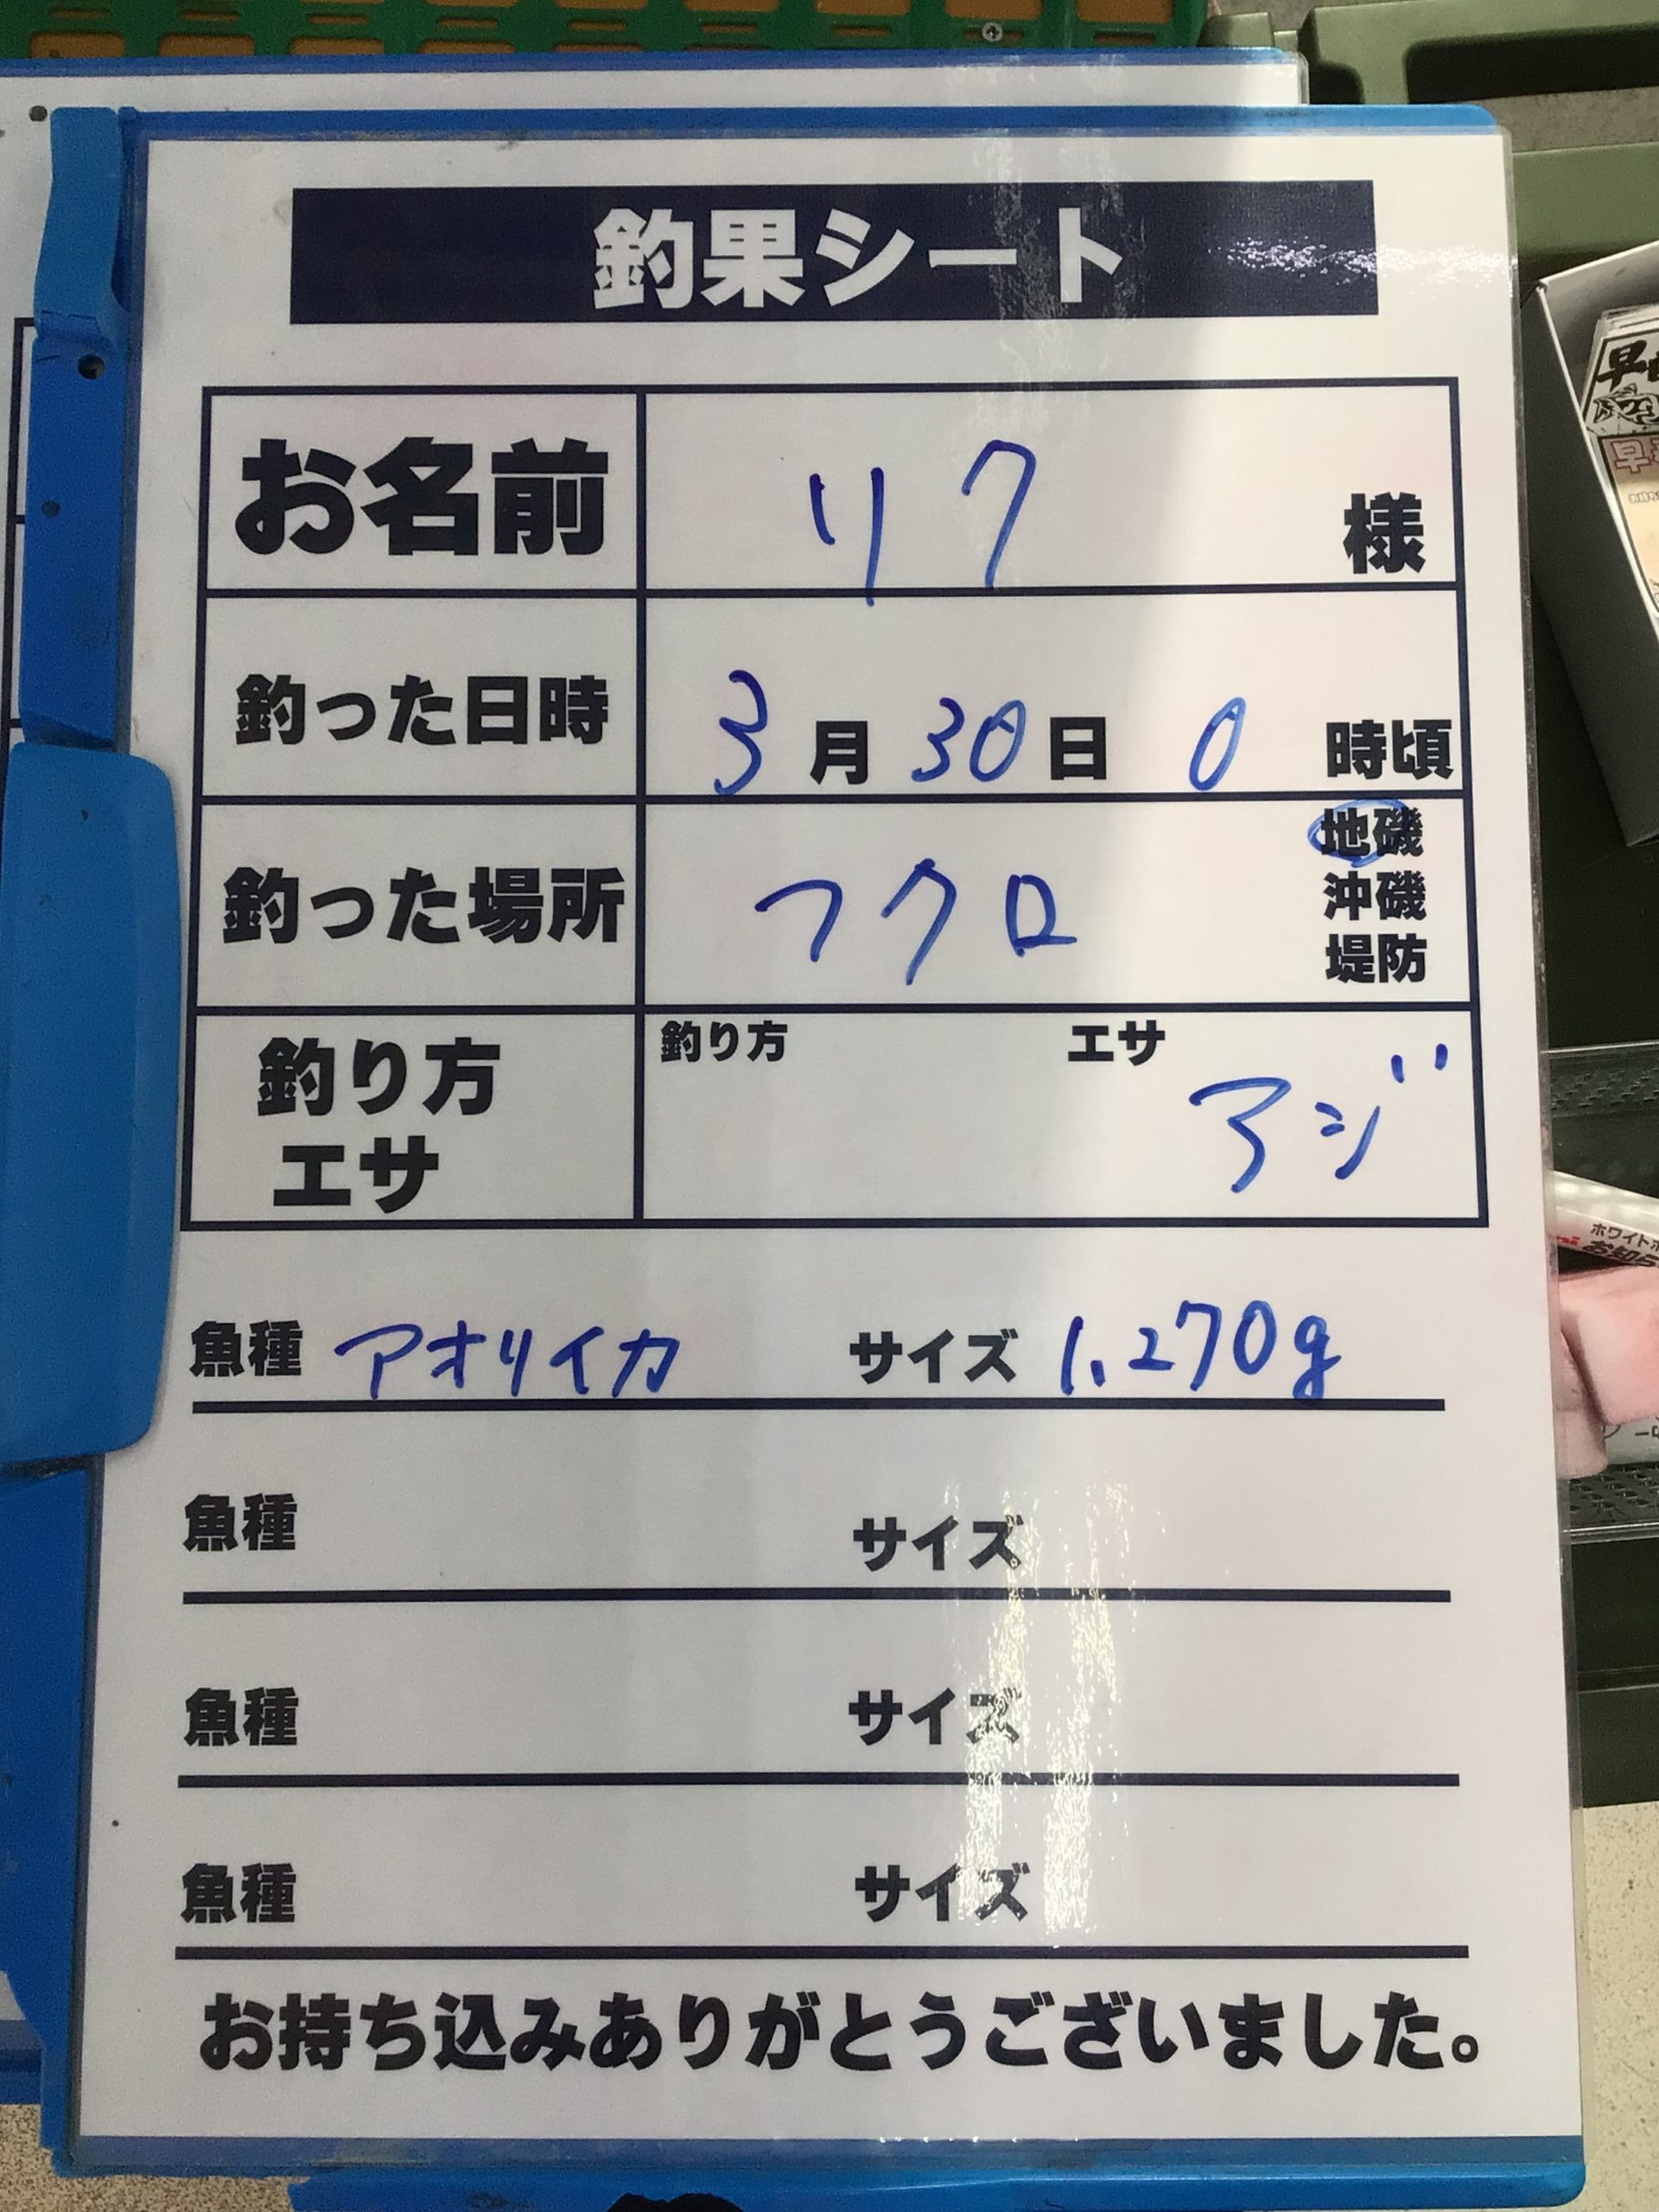 釣果シート
お名前 リク 様
釣った日時 3月30日 0時頃
釣った場所 フクロ 地磯
沖磯
堤防
釣り方 エサ 釣り方 エサ アジ
魚種 アオリイカ サイズ 1,270g
魚種 サイズ
魚種 サイズ
魚種 サイズ
お持ち込みありがとうございました。